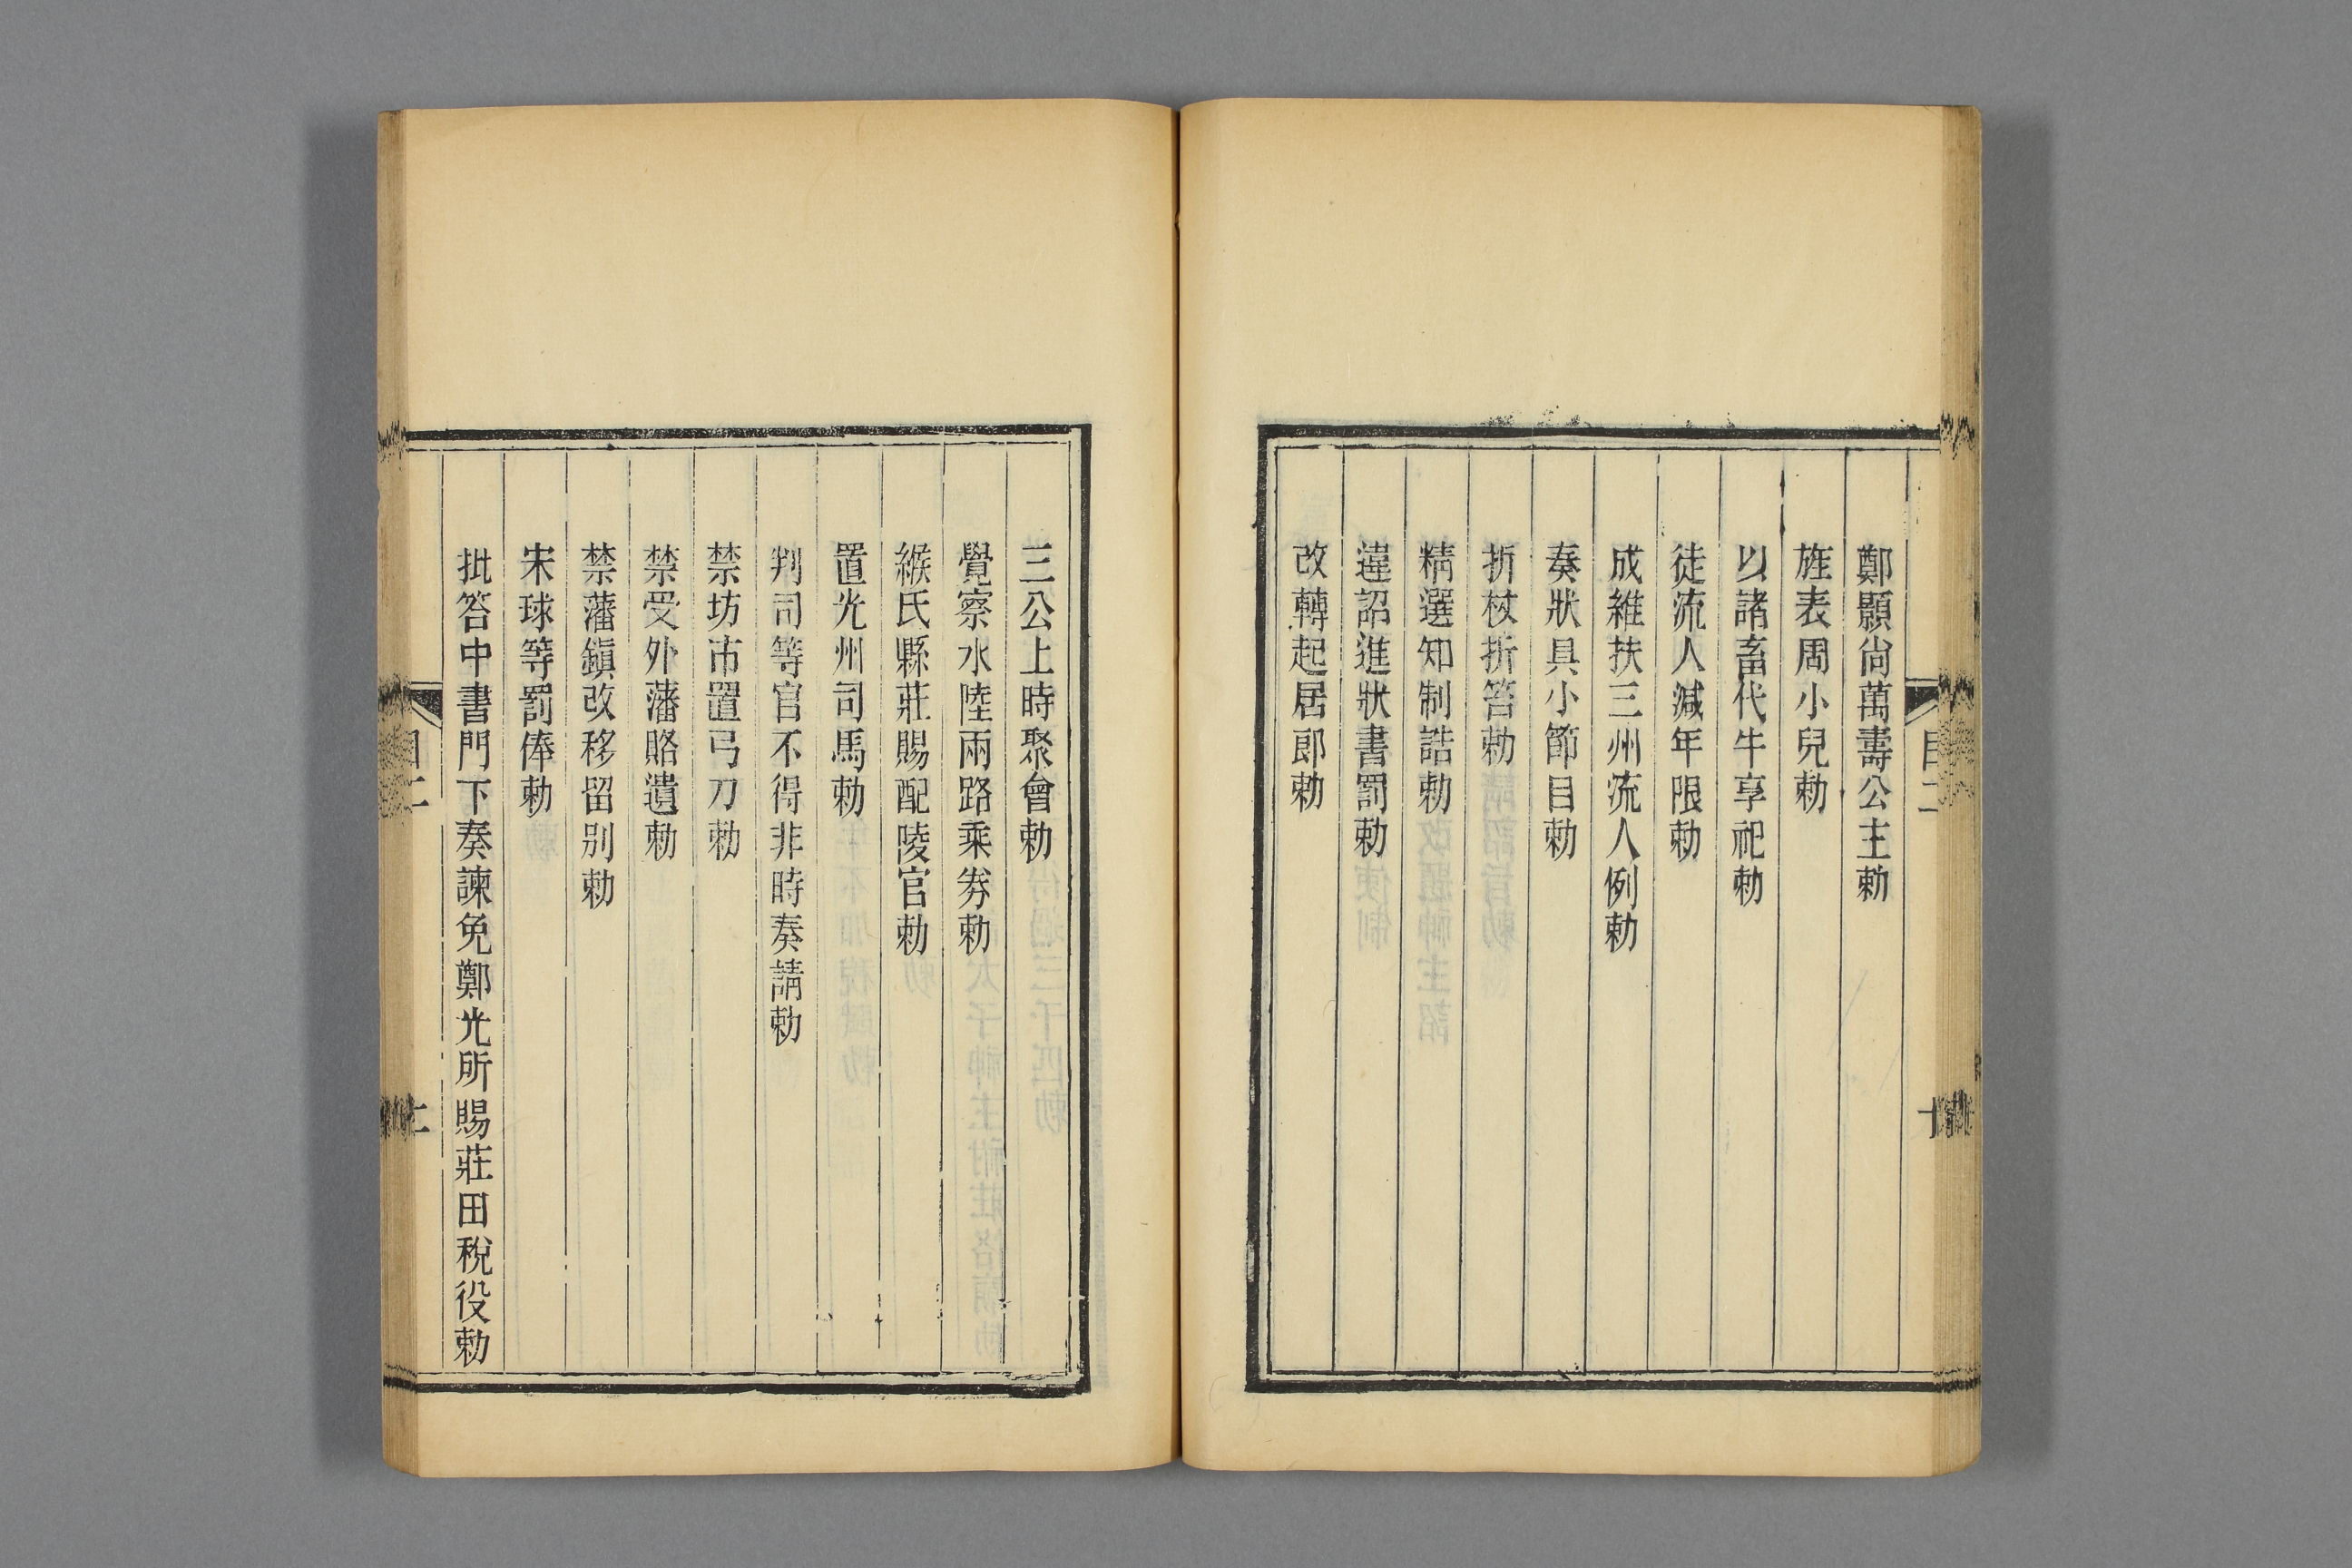 鄭顥尙萬壽公主勅
旌表周小兒勅
以諸畜代牛享祀勅
徒流人減年限勅
成維扶三州流人例勅
奏狀具小節目勅
折杖折笞勅
精選知制誥勅
違詔進狀書罰勅
改轉起居郎勅
目二
十
三公上時聚會勅
覺察水陸兩路乘券勅
緱氏縣莊賜配陵官勅
置光州司馬勅
判司等官不得非時奏請勅
禁坊市置弓刀勅
禁受外藩賂遺勅
禁藩鎭改移留別勅
宋球等罰俸勅
批答中書門下奏諫免鄭光所賜莊田稅役勅
目二